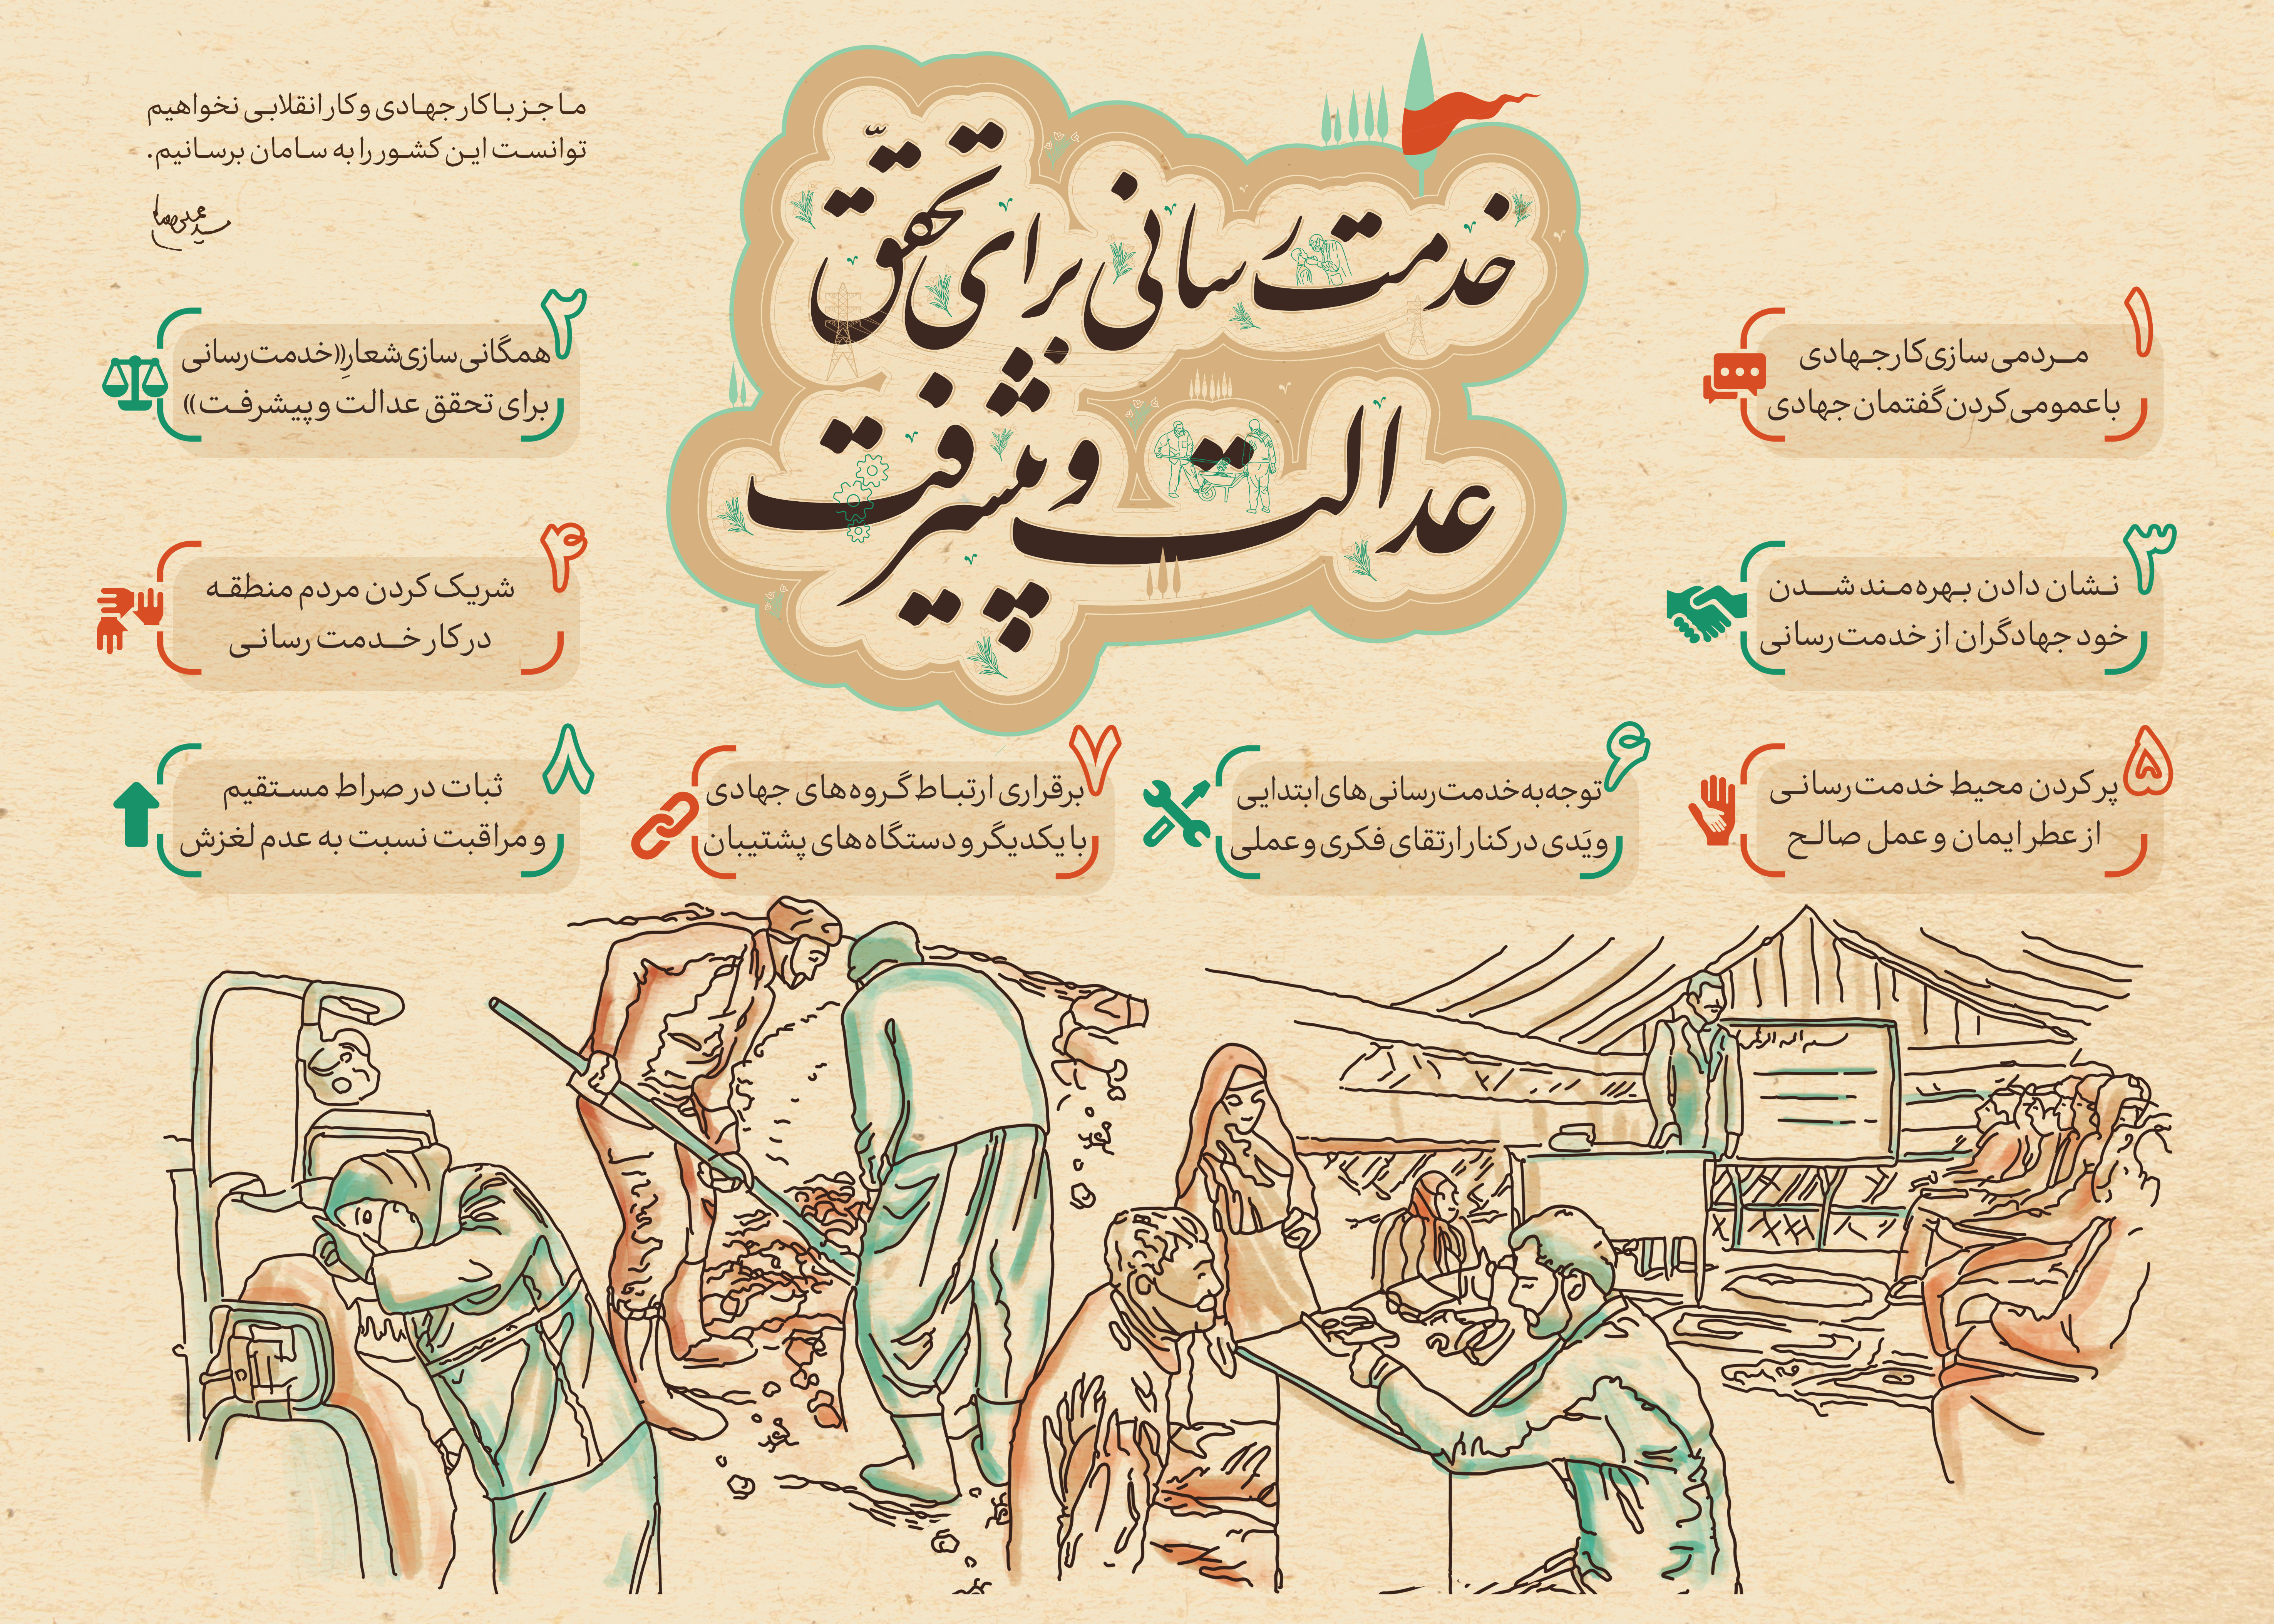 ما جز با کار جهادی و کار انقلابی نخواهیم
توانست این کشور را به سامان برسانیم.
خدمت‌رسانی برای تحقّق
عدالت و پیشرفت
۱
مردمی‌سازی کار جهادی
با عمومی کردن گفتمان جهادی
۲
همگانی‌سازی شعارِ «خدمت‌رسانی
برای تحقق عدالت و پیشرفت»
۳
نشان دادن بهره‌مند شدن
خود جهادگران از خدمت‌رسانی
۴
شریک کردن مردم منطقه
در کار خدمت رسانی
۵
پر کردن محیط خدمت‌رسانی
از عطر ایمان و عمل صالح
۶
توجه به خدمت‌رسانی‌های ابتدایی
و یَدی در کنار ارتقای فکری و عملی
۷
برقراری ارتباط گروه‌های جهادی
با یکدیگر و دستگاه‌های پشتیبان
۸
ثبات در صراط مستقیم
و مراقبت نسبت به عدم لغزش